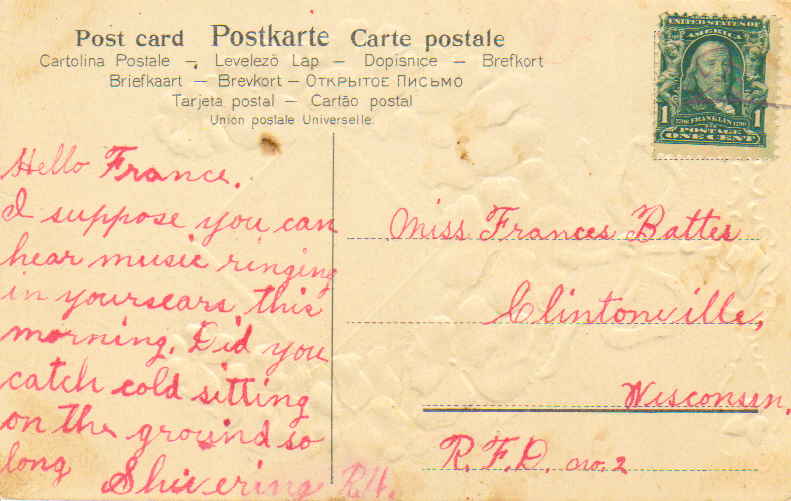 Post card Postkarte Carte postale
Cartolina Postale – Levelező Lap – Dopisnice – Brefkort
Briefkaart – Brevkort – Открытое Письмо
Tarjeta postal – Cartão postal
Union postale Universelle.
UNITED STATES OF
AMERICA
1 1
1706 FRANKLIN 1790
POSTAGE
ONE CENT
Hello France.
I suppose you can
hear music ringing
in yoursears this
morning. Did you
catch cold sitting
on the ground so
long Shivering R.H.
Miss Frances Battes
Clintonville,
Wisconsin.
R.F.D. no. 2